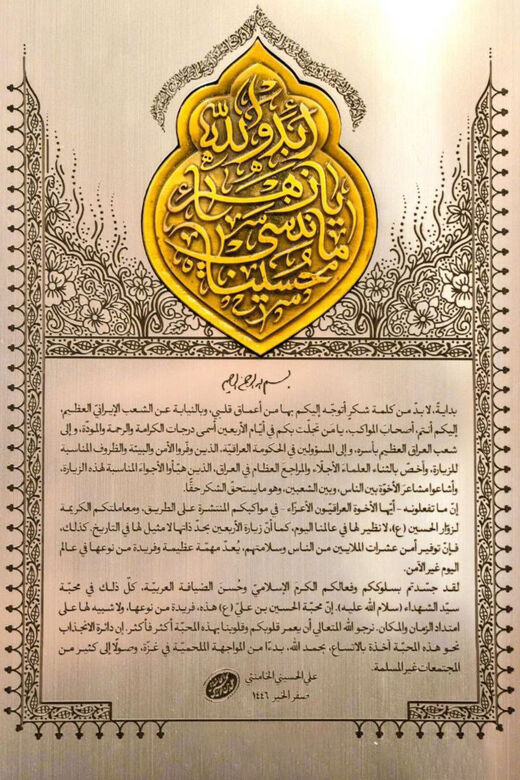 أبد والله
يا زهراء
ما ننسى
حسيناه
بسم الله الرحمن الرحيم
بدايةً، لا بدّ من كلمة شكر أتوجّه إليكم بها من أعماق قلبي، وبالنيابة عن الشعب الإيرانيّ العظيم،
إليكم أنتم، أصحابَ المواكب، يا مَن تجلّت بكم في أيّام الأربعين أسمى درجات الكرامة والرحمة والمودّة، وإلى
شعب العراق العظيم بأسره، وإلى المسؤولين في الحكومة العراقيّة، الذين وفّروا الأمن والبيئة والظروف المناسبة
للزيارة، وأخصّ بالثناء العلماءَ الأجلّاء والمراجعَ العظام في العراق، الذين هيّأوا الأجواءَ المناسبة لهذه الزيارة،
وأشاعوا مشاعرَ الأخوّة بين الناس، وبين الشعبين، وهو ما يستحقّ الشكر حقًّا.
إنّ ما تفعلونه - أيّها الأخوة العراقيّون الأعزّاء - في مواكبكم المنتشرة على الطريق، ومعاملتكم الكريمة
لزوّار الحسين (ع)، لا نظير لها في عالمنا اليوم، كما أنّ زيارة الأربعين بحدّ ذاتها لا مثيل لها في التاريخ. كذلك،
فإنّ توفير أمن عشرات الملايين من الناس وسلامتهم، يُعدّ مهمّة عظيمة وفريدة من نوعها في عالم
اليوم غير الآمن.
لقد جسّدتم بسلوككم وفعالكم الكرمَ الإسلاميّ وحُسنَ الضيافة العربيّة، كلّ ذلك في محبّة
سيّد الشهداء (سلام الله عليه). إنّ محبّة الحسين بن عليّ (ع) هذه، فريدة من نوعها، ولا شبيه لها على
امتداد الزمان والمكان. نرجو الله المتعالي أن يعمر قلوبكم وقلوبنا بهذه المحبّة أكثر فأكثر. إن دائرة الانجذاب
نحو هذه المحبّة آخذة بالاتساع، بحمد الله، بدءًا من المواجهة الملحميّة في غزّة، وصولًا إلى كثير من
المجتمعات غير المسلمة.
علي الحسيني الخامنئي
صفر الخير ١٤٤٦